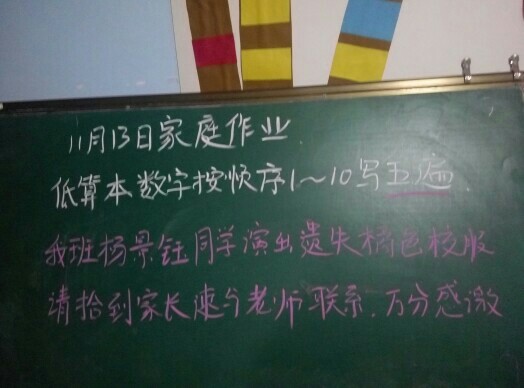 11月13日家庭作业
低算本数字按顺序1～10写五遍
我班杨景钰同学演出遗失橘色校服
请拾到家长速与老师联系.万分感激